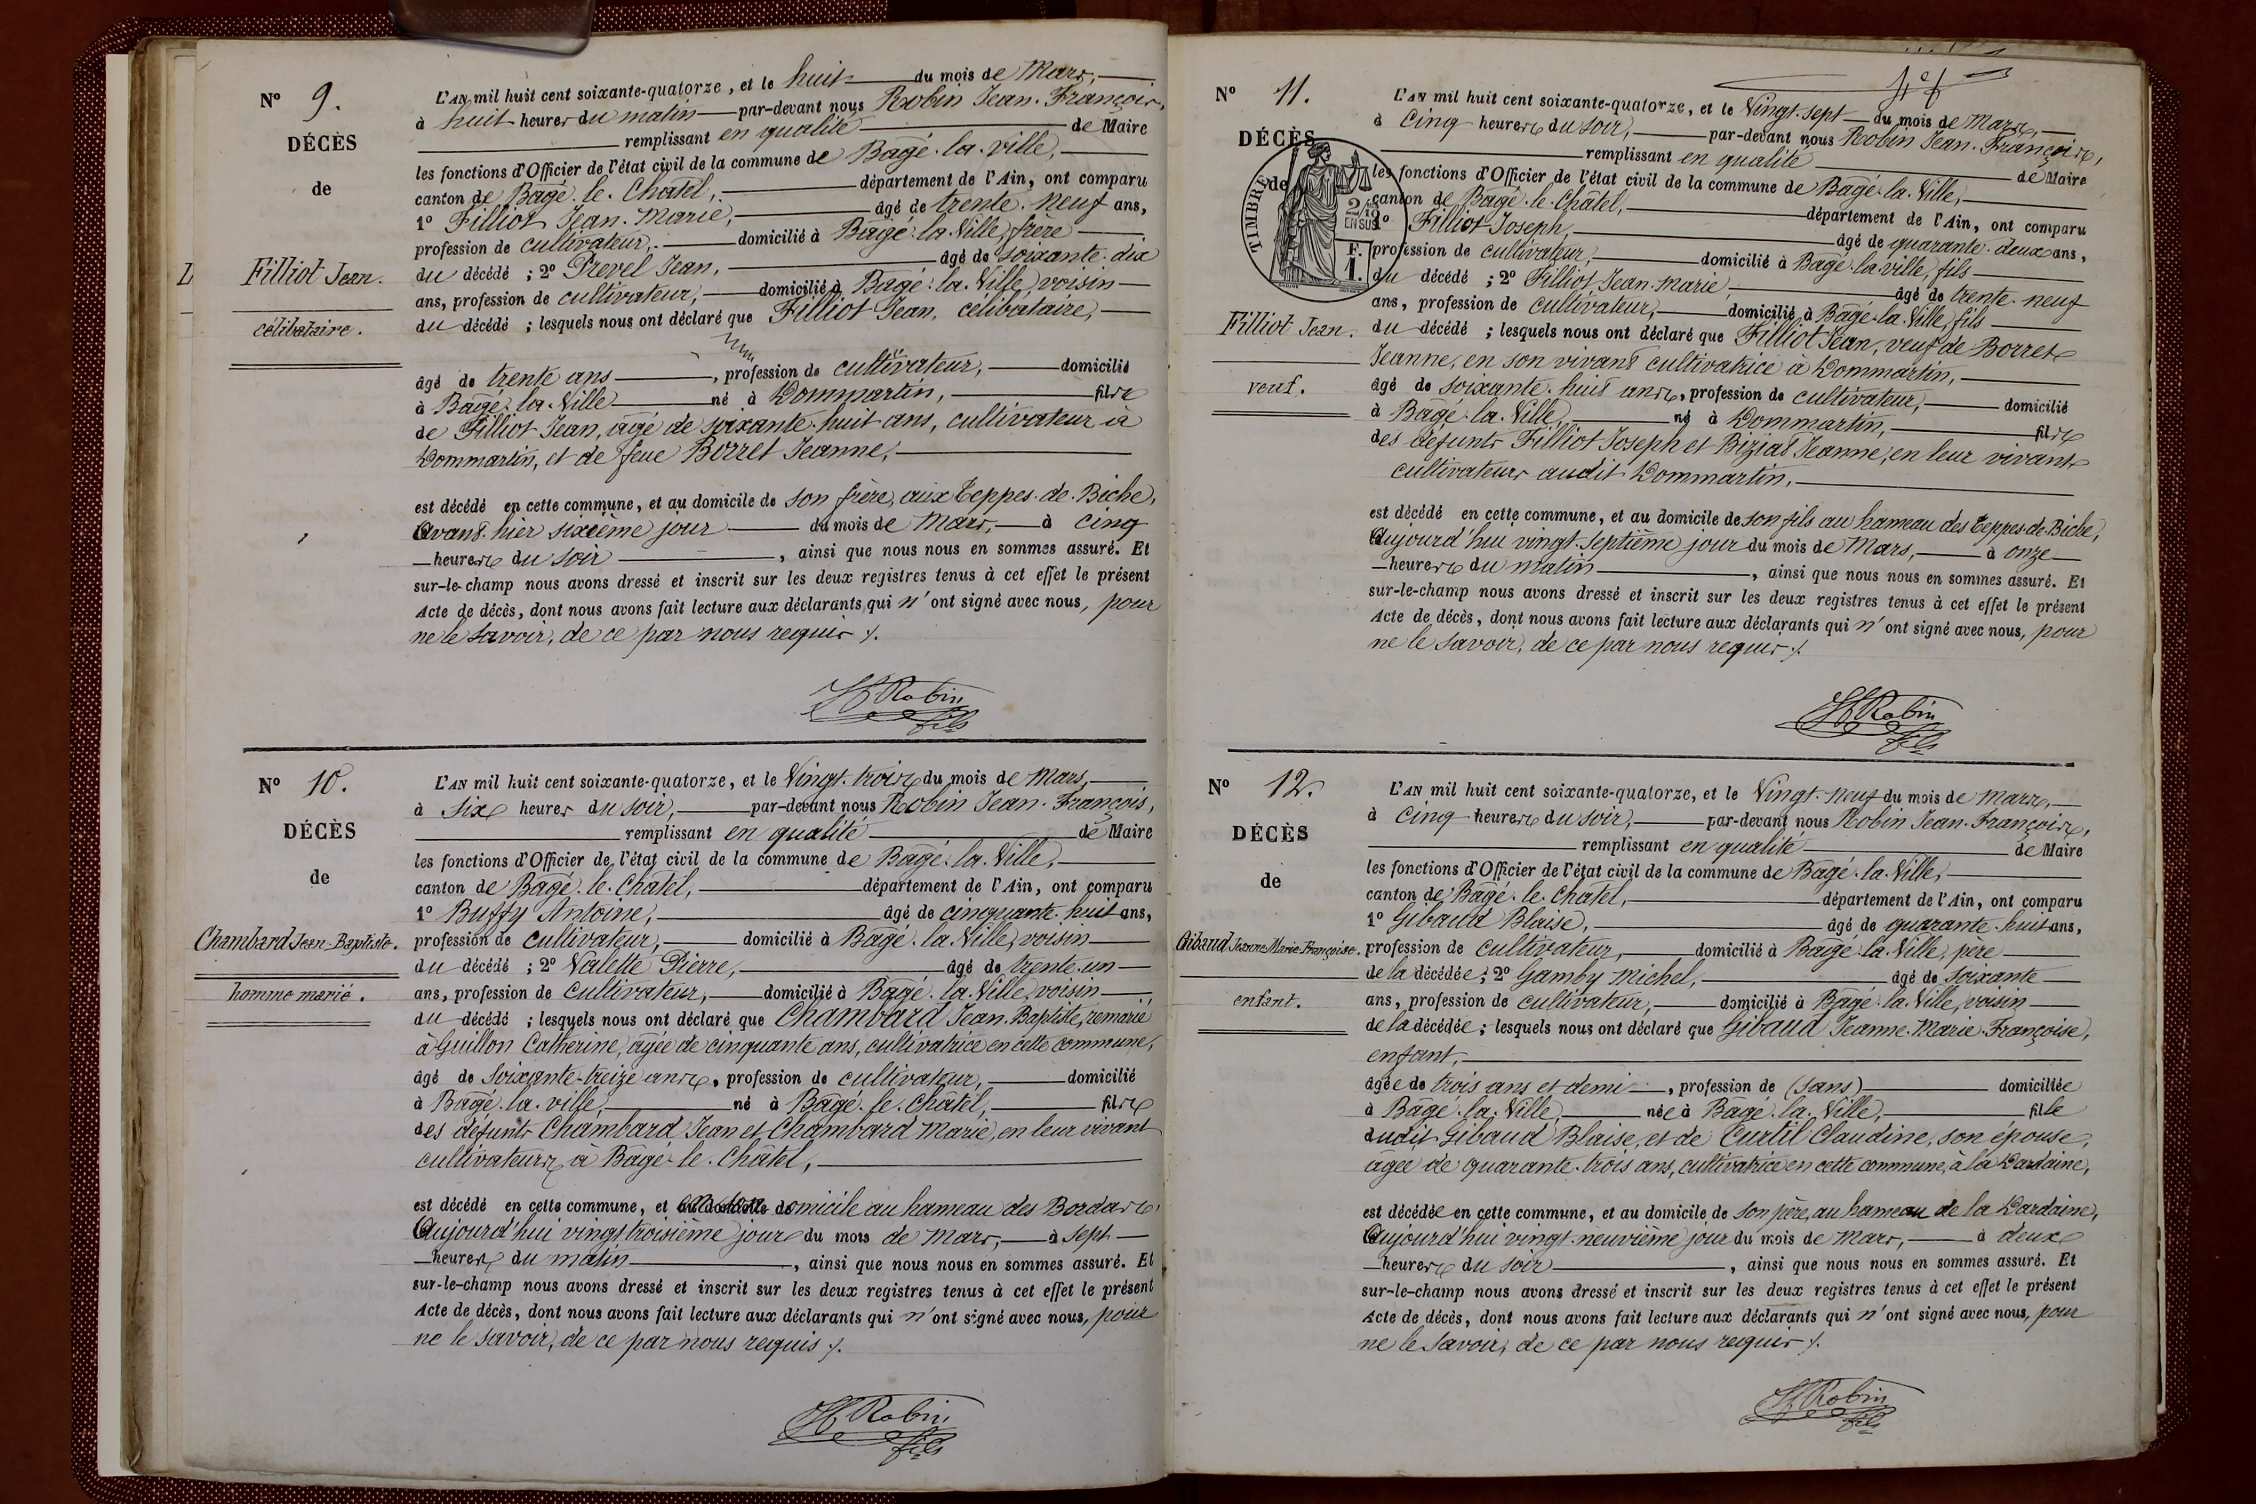 N° 9.
DÉCÈS
de
Filliot Jean.
célibataire.
L'AN mil huit cent soixante-quatorze, et le huit du mois de Mars,
à huit heures du matin par-devant nous Robin Jean-François,
remplissant en qualité de Maire
les fonctions d'Officier de l'état civil de la commune de Bagé-la-ville,
canton de Bagé-le-Chatel, département de l'Ain, ont comparu
1° Filliot Jean-Marie, âgé de trente-neuf ans,
profession de cultivateur, domicilié à Bagé-la-Ville, frère
du décédé ; 2° Prevel Jean, âgé de soixante-dix
ans, profession de cultivateur, domicilié à Bagé-la-Ville, voisin
du décédé ; lesquels nous ont déclaré que Filliot Jean, célibataire,
âgé de trente ans, profession de cultivateur, domicilié
à Bagé-la-Ville né à Dommartin, fils
de Filliot Jean, âgé de soixante-huit ans, cultivateur à
Dommartin, et de feue Borret Jeanne,
est décédé en cette commune, et au domicile de son frère, aux Teppes-de-Biche,
Avant-hier sixième jour du mois de Mars, à cinq
heures du soir, ainsi que nous nous en sommes assuré. Et
sur-le-champ nous avons dressé et inscrit sur les deux registres tenus à cet effet le présent
Acte de décès, dont nous avons fait lecture aux déclarants qui n'ont signé avec nous, pour
ne le savoir, de ce par nous requis ./.
Robin
fils
N° 10.
DÉCÈS
de
Chambard Jean-Baptiste.
homme marié.
L'AN mil huit cent soixante-quatorze, et le Vingt-trois du mois de Mars,
à six heures du soir, par-devant nous Robin Jean-François,
remplissant en qualité de Maire
les fonctions d'Officier de l'état civil de la commune de Bagé-la-Ville,
canton de Bagé-le-Chatel, département de l'Ain, ont comparu
1° Buffy Antoine, âgé de cinquante-huit ans,
profession de cultivateur, domicilié à Bagé-la-Ville, voisin
du décédé ; 2° Valette Pierre, âgé de trente-un
ans, profession de cultivateur, domicilié à Bagé-la-Ville, voisin
du décédé ; lesquels nous ont déclaré que Chambard Jean-Baptiste, remarié
à Guillon Catherine, âgée de cinquante ans, cultivatrice en cette commune,
âgé de soixante-treize ans, profession de cultivateur, domicilié
à Bagé-la-ville, né à Bagé-le-Châtel, fils
des défunts Chambard Jean et Chambard Marie, en leur vivant
cultivateurs à Bagé-le-Châtel,
est décédé en cette commune, et domicile au hameau des Bordas,
Aujourd'hui vingt troisième jour du mois de Mars, à sept
heures du matin, ainsi que nous nous en sommes assuré. Et
sur-le-champ nous avons dressé et inscrit sur les deux registres tenus à cet effet le présent
Acte de décès, dont nous avons fait lecture aux déclarants qui n'ont signé avec nous, pour
ne le savoir, de ce par nous requis ./.
Robin
fils
N° 11.
DÉCÈS
de
TIMBRE
2/10
EN SUS
F.
1.
Filliot Jean.
veuf.
L'AN mil huit cent soixante-quatorze, et le Vingt-sept du mois de Mars,
à Cinq heures du soir, par-devant nous Robin Jean-François,
remplissant en qualité de Maire
les fonctions d'Officier de l'état civil de la commune de Bagé-la-Ville,
canton de Bagé-le-Châtel, département de l'Ain, ont comparu
1° Filliot Joseph, âgé de quarante-deux ans,
profession de cultivateur, domicilié à Bagé-la-ville, fils
du décédé ; 2° Filliot Jean-Marie, âgé de trente-neuf
ans, profession de cultivateur, domicilié à Bagé-la-Ville, fils
du décédé ; lesquels nous ont déclaré que Filliot Jean, veuf de Borret
Jeanne, en son vivant cultivatrice à Dommartin,
âgé de soixante-huit ans, profession de cultivateur, domicilié
à Bagé-la-Ville, né à Dommartin, fils
des défunts Filliot Joseph et Biziat Jeanne, en leur vivant
cultivateurs audit Dommartin,
est décédé en cette commune, et au domicile de son fils au hameau des Teppes-de-Biche,
Aujourd'hui vingt-septième jour du mois de Mars, à onze
heures du matin, ainsi que nous nous en sommes assuré. Et
sur-le-champ nous avons dressé et inscrit sur les deux registres tenus à cet effet le présent
Acte de décès, dont nous avons fait lecture aux déclarants qui n'ont signé avec nous, pour
ne le savoir, de ce par nous requis ./.
Robin
fils
N° 12.
DÉCÈS
de
Gibaud Jeanne Marie Françoise.
enfant.
L'AN mil huit cent soixante-quatorze, et le Vingt-neuf du mois de Mars,
à Cinq heures du soir, par-devant nous Robin Jean-François,
remplissant en qualité de Maire
les fonctions d'Officier de l'état civil de la commune de Bagé-la-Ville,
canton de Bagé-le-Chatel, département de l'Ain, ont comparu
1° Gibaud Blaise, âgé de quarante-huit ans,
profession de cultivateur, domicilié à Bagé-la-Ville, père
de la décédée ; 2° Gamby Michel, âgé de soixante
ans, profession de cultivateur, domicilié à Bagé-la-Ville, voisin
de la décédée ; lesquels nous ont déclaré que Gibaud Jeanne-Marie-Françoise,
enfant,
âgée de trois ans et demi, profession de (sans) domiciliée
à Bagé-la-Ville, née à Bagé-la-Ville, fille
dudit Gibaud Blaise, et de Curtil Claudine, son épouse,
âgée de quarante-trois ans, cultivatrice en cette commune, à la Dardaine,
est décédée en cette commune, et au domicile de son père, au hameau de la Dardaine,
Aujourd'hui vingt-neuvième jour du mois de Mars, à deux
heures du soir, ainsi que nous nous en sommes assuré. Et
sur-le-champ nous avons dressé et inscrit sur les deux registres tenus à cet effet le présent
Acte de décès, dont nous avons fait lecture aux déclarants qui n'ont signé avec nous, pour
ne le savoir, de ce par nous requis ./.
Robin
fils